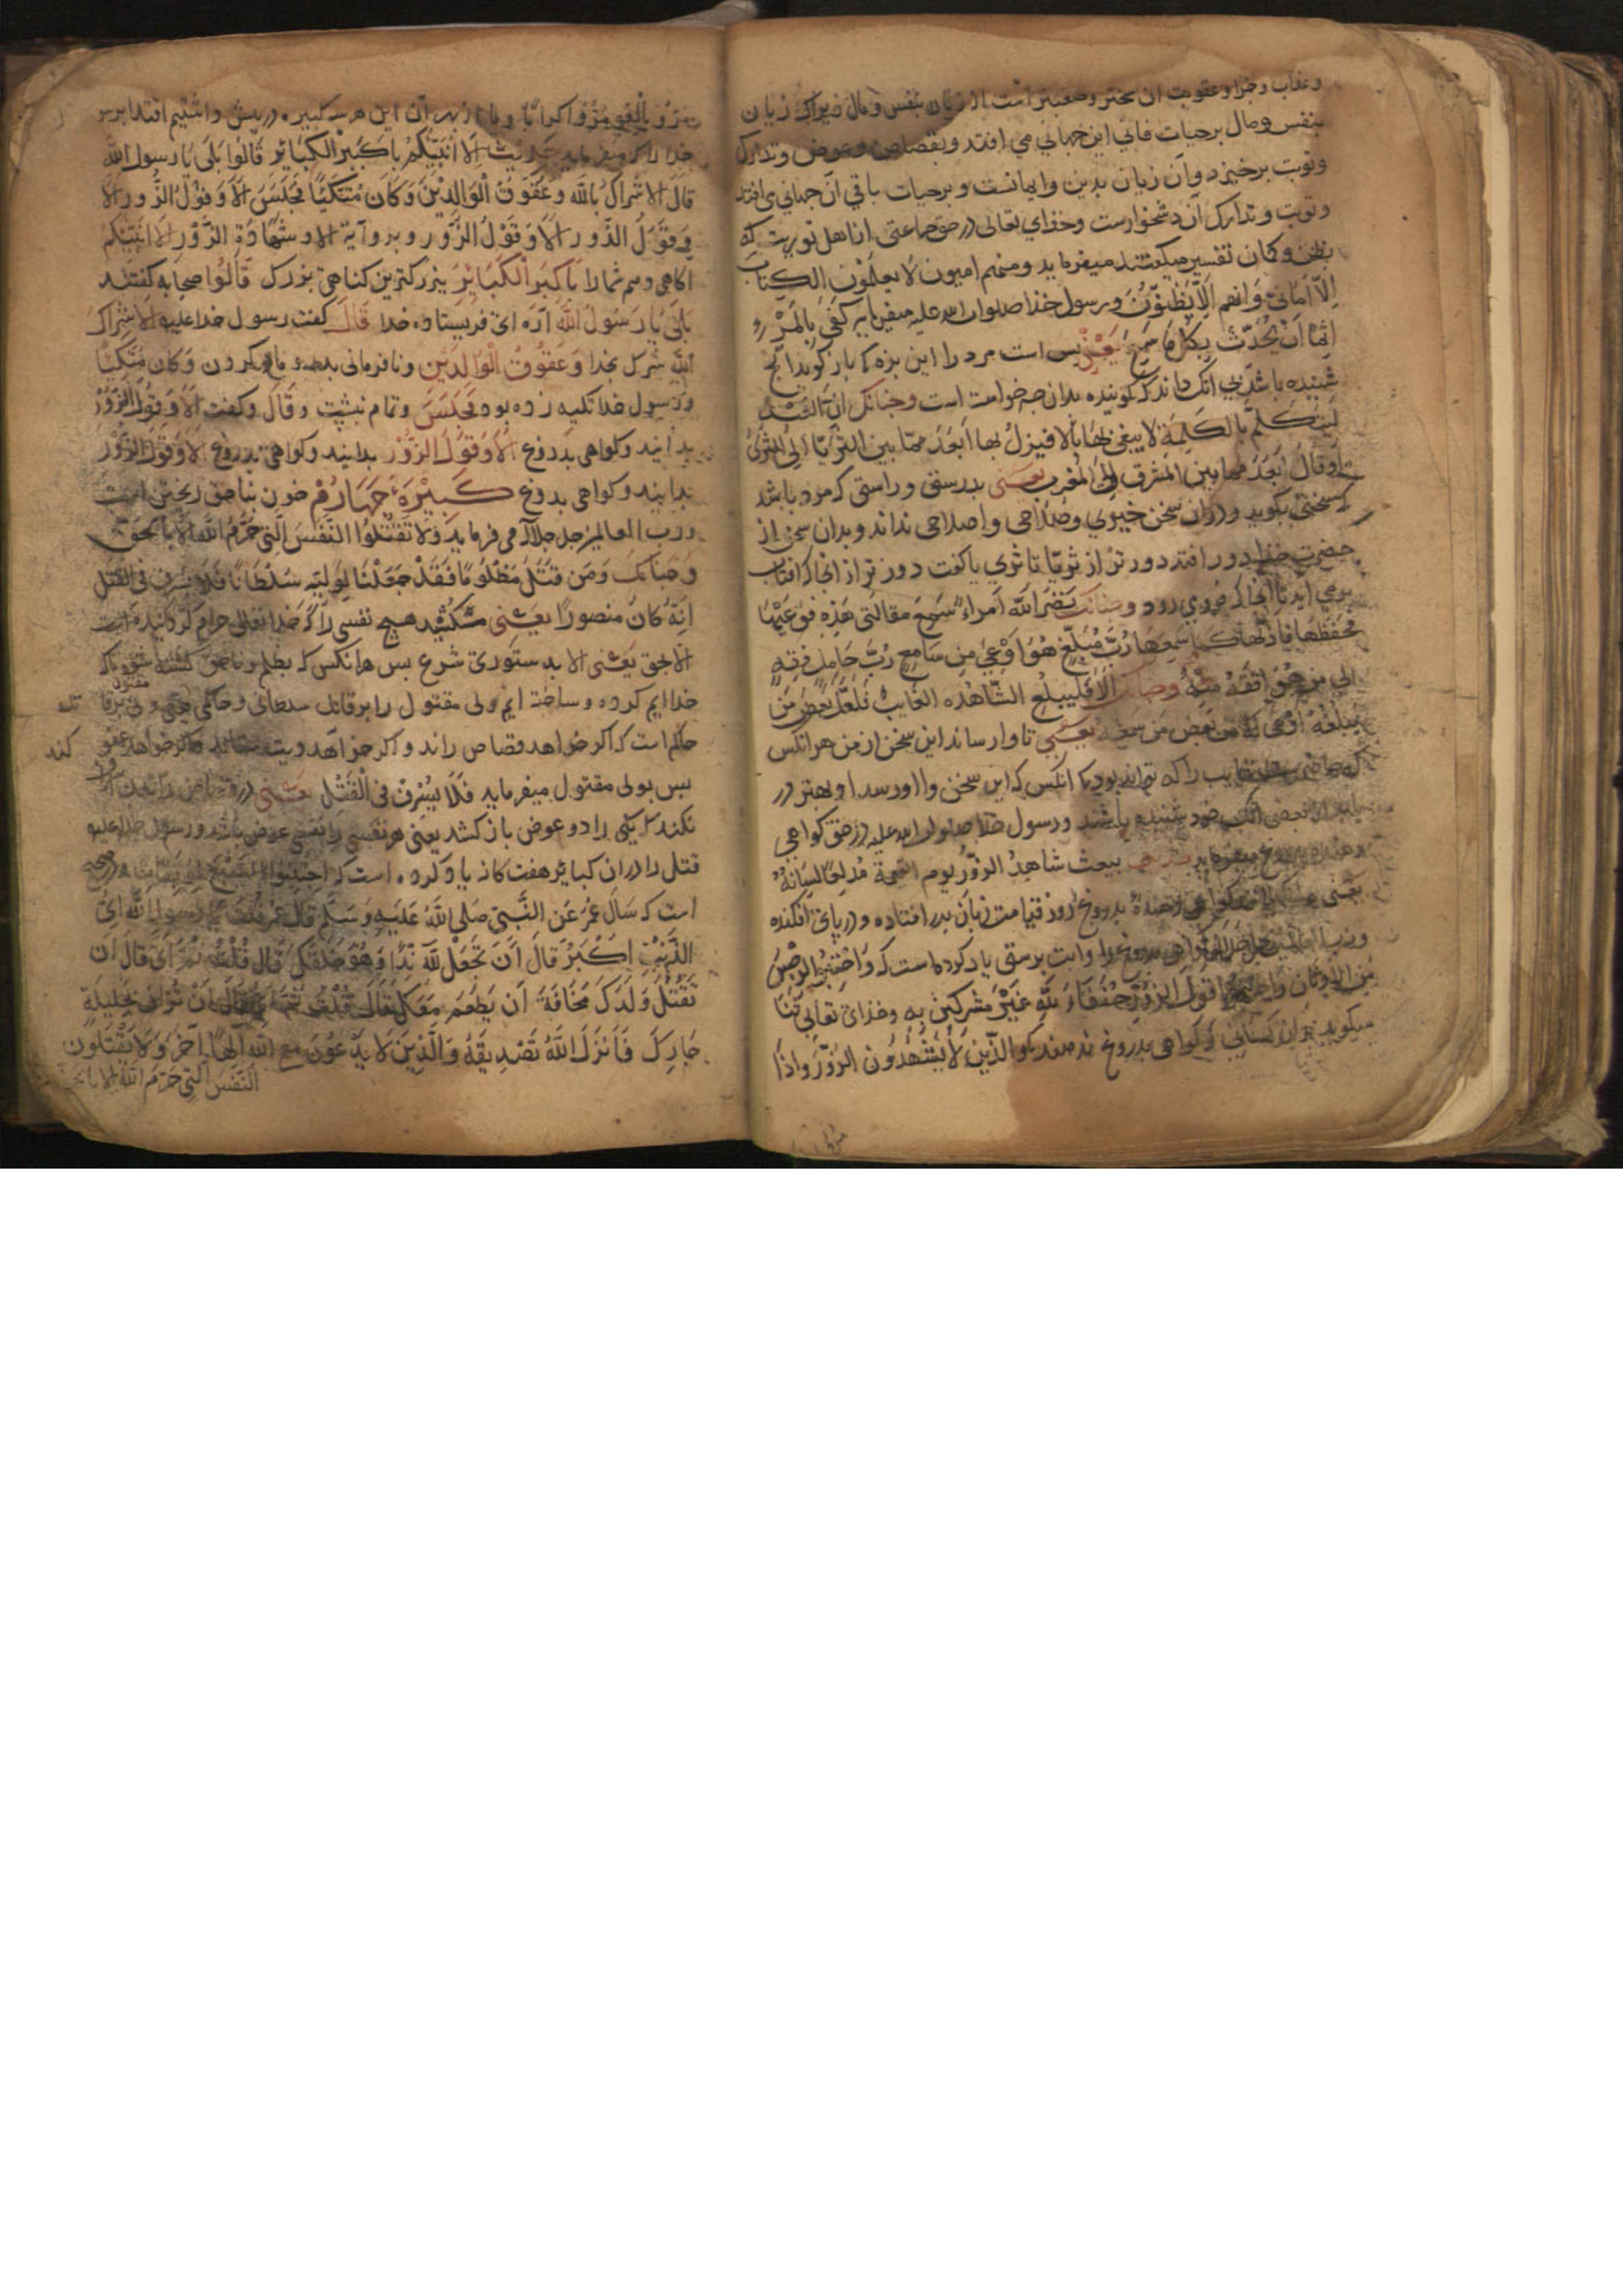 وعذاب وجزا وعقوبت ان سختر وصعبتر است از زیان بنفس ومال زیراکه زیان
بنفس ومال برحیات فانی این جهانی می افتد وبقصاص وعوض وتدارک
وتوبت برخیزد وآن زیان بدین وایمانست وبرحیات باقی آن جهانی می افتد
وتوبت وتدارک آن دشخوارست وخدای تعالی در حق جماعتی از اهل توریت که
بظن وکمان تفسیر میکفتند میفرماید ومنهم امیون لا یعلمون الکتاب
الا امانی وانهم الا یظنون ورسول خدا صلوات الله علیه میفرماید کفی بالمرء
اثما ان یحدث بکل ما سمع یعنی بس است مرد را این بزه کا باز کوید انج
شنیده باشد بی انک داند که کوینده بدان چه خواست است وچنانک ان العبد
لیتکلم بالکلمة لا یبغی لها بالا فیزل بها ابعد مما بین الثریا الی الثری
وقال ابعد مما بین المشرق الی المغرب یعنی بدرستی وراستی که مرد باشد
که سخنی بکوید ودر ان سخن خیری وصلاحی واصلاحی نداند وبدان سخن از
حضرت خدا دور افتد دور تر از ثریا تا ثری یا کفت دور تر از انجا که افتاب
برمی آید تا انجا که فرو می رود وچنانک نضر الله امراء سمع مقالتی هذه فوعیها
محفظها فاداها کما سمعها رب مبلغ هو اوعی من سامع رب حامل فقه
الی من هو افقه منه وچنانک الا فلیبلغ الشاهده الغایب فلعل بعض من
یبلغه اوعی له من بعض من سمعه یعنی تا وارساند این سخن از من هر انکس
که حاضر غایب را که تواند بود کا انکس که این سخن وا اورسد او بهتر در
از بعضی انک خود شنیده باشند ورسول خدا صلوات الله علیه در حق کواهی
دهنده بدروغ میفرماید یبعث شاهد الزور یوم القیمة مدلعا لسانه
یعنی کواهی دهندهٔ بدروغ روز قیامت زبان بدر افتاده ودر پای افکنده
ورب العالمین کواهی بدروغ را وابت برستی یاد کرده است که واجتنبوا الرجس
من الاوثان واجتنبوا قول الزور حنفاء لله غیر مشرکین به وخدای تعالی ثنا
میکوید بران کسانی که کواهی بدروغ ندهند کو والذین لا یشهدون الزور واذا
مروا باللغو مروا کراما وما از بهر آن این هر سه کبیره در پیش داشتیم اقتدا برسول
خدا را که میفرماید حدیث الا انبئکم باکبر الکبائر قالوا بلی یا رسول الله
قال الاشراک بالله وعقوق الوالدین وکان متکئا فجلس الا وقول الزور الا
وقول الزور الا وقول الزور وبروآیة الا وشهادة الزور الا انبئکم
اکاهی دهم شما را باکبر الکبائر بزرکترین کناهی بزرک قالوا صحابه کفتند
بلی یا رسول الله آره ای فریستاده خدا قال کفت رسول خدا علیه الاشراک
بالله شرک بخدا وعقوق الوالدین ونافرمانی پدر و مادر کردن وکان متکئا
ورسول خدا تکیه زده بود فجلس وتمام نبشست وقال وکفت الا وقول الزور
بدانید وکواهی بدروغ الا وقول الزور بدانید وکواهی بدروغ الا وقول الزور
بدانید وکواهی بدروغ کبیرهٔ چهارم خون بناحق ریختن است
ورب العالمین جل جلاله می فرماید ولا تقتلوا النفس التی حرم الله الا بالحق
وچنانک ومن قتل مظلوما فقد جعلنا لولیه سلطانا فلا یسرف فی القتل
انه کان منصورا یعنی مکشید هیچ نفسی را که خدا تعالی حرام کردانیده است
الا بحق یعنی الا بدستوری شرع بس هر انکس که بظلم وناحق کشته شود
خدا ایم کرده وساخته ایم ولی مقتول را بر قاتل سلطانی وحاکمی یعنی ولی مقتول برقاتل
حاکم است که اکر خواهد قصاص راند واکر خواهد دیت ستاند واکر خواهد عفو کند
بس بولی مقتول میفرماید فلا یسرف فی القتل یعنی در قصاص راندن
نکند که یکی را دو عوض باز کشد یعنی هر نفسی را نفسی عوض باشد ورسول خدا علیه
قتل را در ان کبایر هفت کانه یاد کرده است که اجتنبوا السبع الموبقات ودر صحیح
است که سال عمر عن النبی صلی الله علیه وسلم قال یا رسول الله ای
الذنب اکبر قال ان تجعل لله ندا وهو خلقک قال قلت ثم ای قال ان
تقتل ولدک مخافة ان یطعم معک قال قلت ثم قال ان تزانی بحلیلة
جارک فانزل الله تصدیقه والذین لا یدعون مع الله الها آخر ولا یقتلون
النفس التی حرم الله الا بالحق